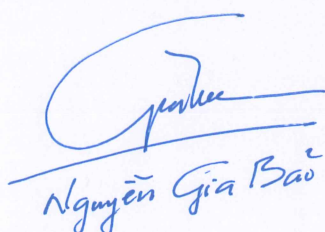 Nguyễn Gia Bảo